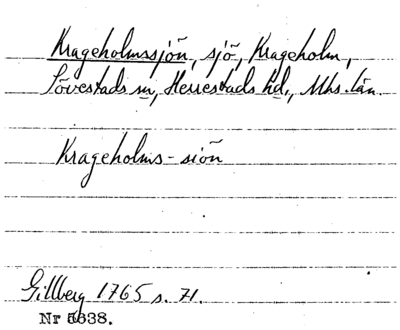 Krageholmssjön, sjö, Krageholm,
Sövestads sn, Herrestads hd., Mhs. län.
Krageholms-siön
Gillberg 1765 s. 71.
Nr 5638.